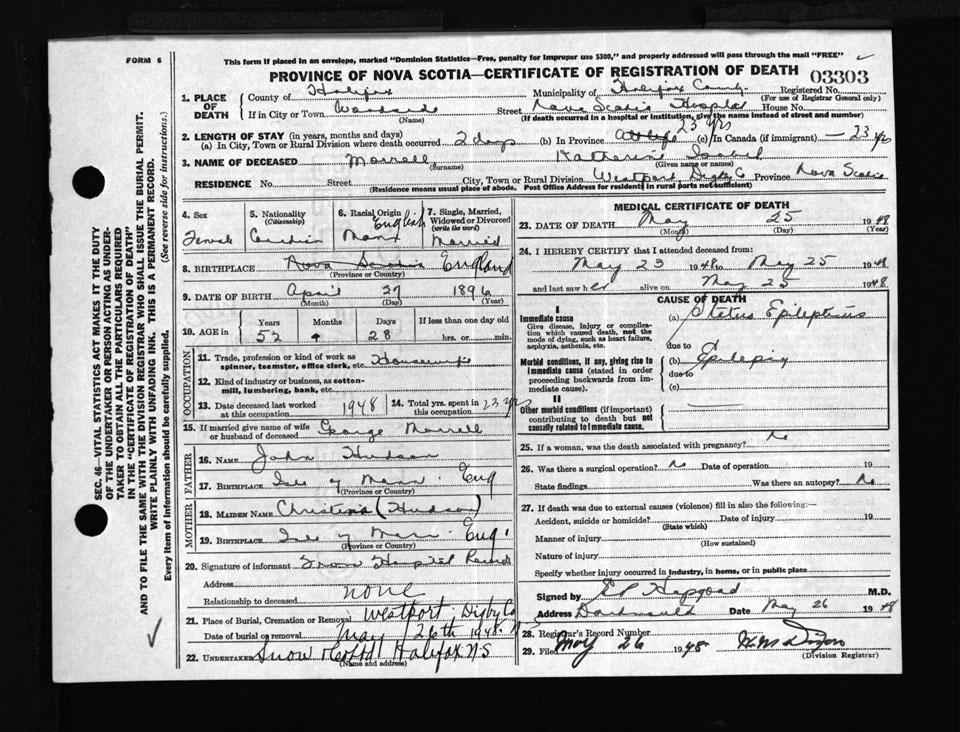 FORM 6
This form if placed in an envelope, marked "Dominion Statistics—Free, penalty for improper use $300," and properly addressed will pass through the mail "FREE"
PROVINCE OF NOVA SCOTIA—CERTIFICATE OF REGISTRATION OF DEATH 03303
1. PLACE OF DEATH County of Halifax Municipality of Halifax County Registered No.
(For use of Registrar General only)
If in City or Town Woodside Street Nova Scotia Hospital House No.
(Name) (If death occurred in a hospital or institution, give the name instead of street and number)
2. LENGTH OF STAY (in years, months and days)
(a) In City, Town or Rural Division where death occurred 2 days (b) In Province 23 yrs (c) In Canada (if immigrant) — 23 yrs
3. NAME OF DECEASED Morrell, Katherine Isabel
(Surname) (Given name or names)
RESIDENCE No. Street City, Town or Rural Division Westport Digby Co Province Nova Scotia
(Residence means usual place of abode. Post Office Address for residents in rural parts not sufficient)
4. Sex Female
5. Nationality (Citizenship) Canadian
6. Racial Origin English Manx
7. Single, Married, Widowed or Divorced (write the word) Married
8. BIRTHPLACE Nova Scotia England
(Province or Country)
9. DATE OF BIRTH April 27 1896
(Month) (Day) (Year)
10. AGE in Years Months Days If less than one day old
52 28 hrs. or min.
OCCUPATION
11. Trade, profession or kind of work as spinner, teamster, office clerk, etc. Housewife
12. Kind of industry or business, as cotton-mill, lumbering, bank, etc.
13. Date deceased last worked at this occupation 1948
14. Total yrs. spent in this occupation 23 yrs
15. If married give name of wife or husband of deceased George Morrell
FATHER
16. NAME John Hudson
17. BIRTHPLACE Isle of Man Eng
(Province or Country)
MOTHER
18. MAIDEN NAME Christina (Hudson)
19. BIRTHPLACE Isle of Man Eng
(Province or Country)
20. Signature of informant From Hospital Records
Address
Relationship to deceased none
21. Place of Burial, Cremation or Removal Westport Digby Co
Date of burial or removal May 26th 1948
22. UNDERTAKER Snow Halifax NS
(Name and address)
MEDICAL CERTIFICATE OF DEATH
23. DATE OF DEATH May 25 1948
(Month) (Day) (Year)
24. I HEREBY CERTIFY that I attended deceased from:
May 23 1948 to May 25 1948
and last saw her alive on May 25 1948
CAUSE OF DEATH
I
Immediate cause
Give disease, injury or complication which caused death, not the mode of dying, such as heart failure, asphyxia, asthenia, etc.
(a) Status Epilepticus
due to
Morbid conditions, if any, giving rise to immediate cause (stated in order proceeding backwards from immediate cause).
(b) Epilepsy
due to
(c)
II
Other morbid conditions (if important) contributing to death but not causally related to immediate cause.
25. If a woman, was the death associated with pregnancy? No
26. Was there a surgical operation? No Date of operation 19
State findings Was there an autopsy? No
27. If death was due to external causes (violence) fill in also the following:—
Accident, suicide or homicide? Date of injury 19
(State which)
Manner of injury
(How sustained)
Nature of injury
Specify whether injury occurred in industry, in home, or in public place
Signed by E P Hapgood M.D.
Address Dartmouth Date May 26 1948
28. Registrar's Record Number
29. Filed May 26 1948 H M Dixon
(Division Registrar)
SEC. 46—VITAL STATISTICS ACT MAKES IT THE DUTY
OF THE UNDERTAKER OR PERSON ACTING AS UNDER-
TAKER TO OBTAIN ALL THE PARTICULARS REQUIRED
IN THE "CERTIFICATE OF REGISTRATION OF DEATH"
AND TO FILE THE SAME WITH THE DIVISION REGISTRAR WHO SHALL ISSUE THE BURIAL PERMIT.
WRITE PLAINLY WITH UNFADING INK. THIS IS A PERMANENT RECORD.
Every item of information should be carefully supplied. (See reverse side for instructions.)